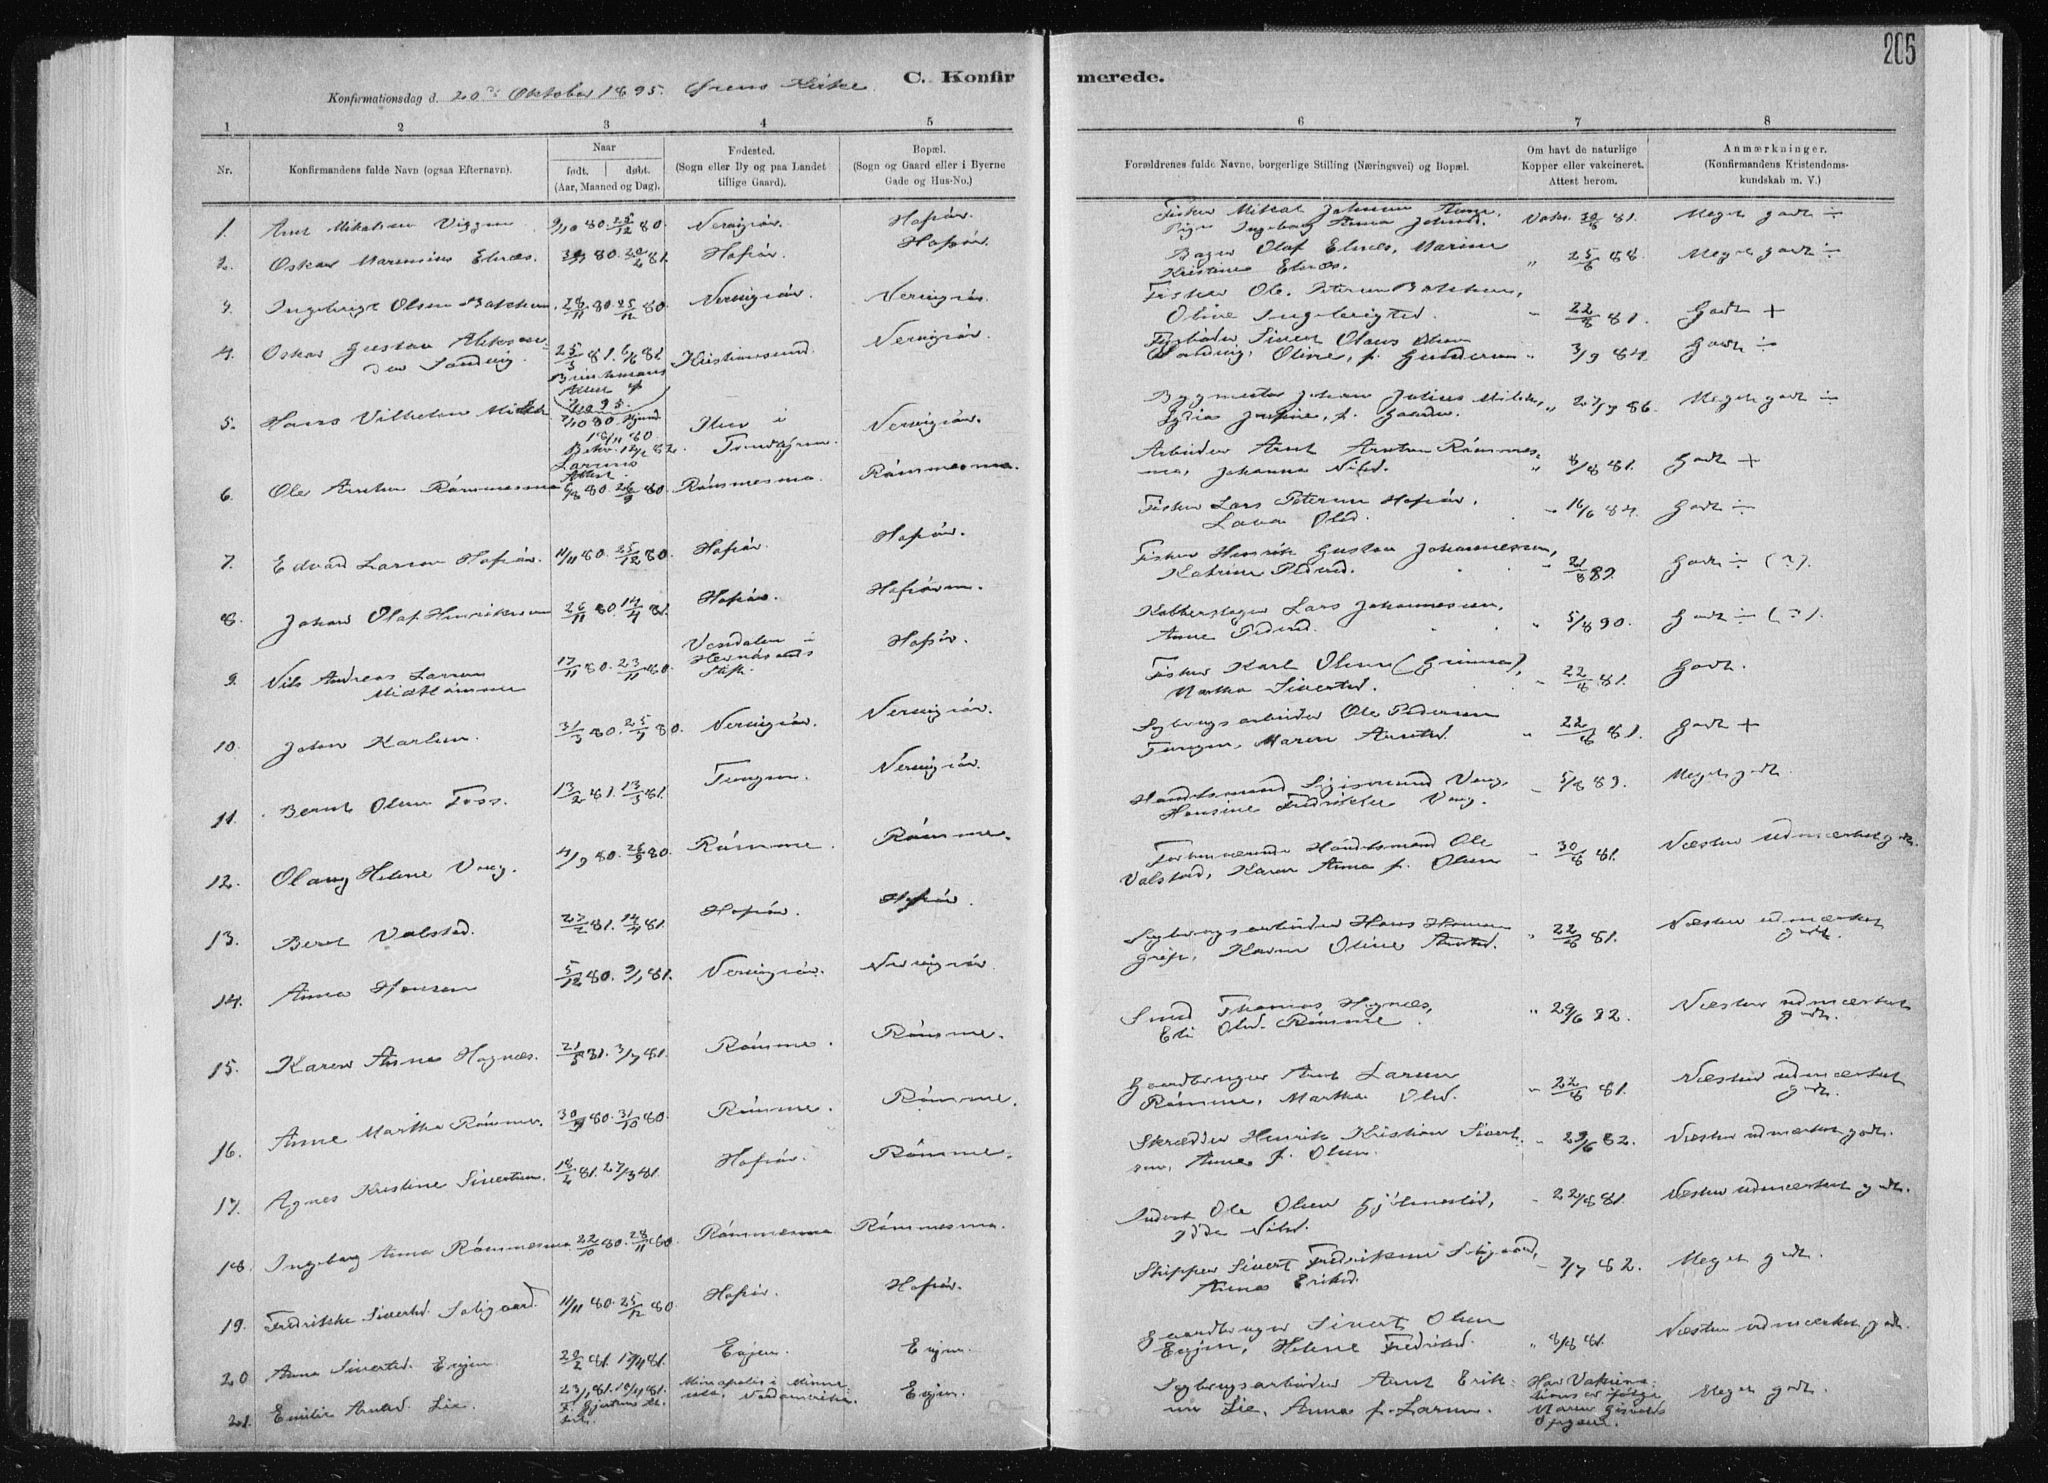 205
C. Konfirmerede.
Konfirmationsdag d. 20de Oktober 1895. Ørens Kirke
1 2 3 4 5 6 7 8
Nr.
Konfirmandens fulde Navn (ogsaa Efternavn).
Naar
født. døbt.
(Aar, Maaned og Dag).
Fødested.
(Sogn eller By og paa Landet
tillige Gaard).
Bopæl.
(Sogn og Gaard eller i Byerne
Gade og Hus-No.)
Forældrenes fulde Navne, borgerlige Stilling (Næringsvei) og Bopæl.
Om havt de naturlige
Kopper eller vakcineret.
Attest herom.
Anmærkninger.
(Konfirmandens Kristendoms-
kundskab m. V.)
1. Arnt Mikalsen Viggen 9/10 80. 25/12 80 Nervigiør. Hofiør. Fisker Mikal Johnsen
Pige Ingeborg Anna Johnsd. Vakc. 30/8 81. Meget godt ÷
2. Oskar Marensius Elnæs. 80. 81. Hofiør. Hofiør. Bager Olaf Elnæs, Marine
Kristine Elnæs. " 25/6 88. Meget godt ÷
3. Ingebrigt Olsen Bakken. 28/11 80. 25/12 80 Nervigiør. Nervigiør. Fisker Ole Petersen Bakken,
Oline Ingebrigtsd. " 22/8 81. Godt +
4. Oskar Gustav Aleksan-
der Sandvig. 25/3 81. 6/6 81 Kristiansund. Nervigiør. Sivert Olaus
Sandvig, Oline, f. Gundersen " 3/9 84. Godt ÷
5. Hans Vilhelm Milch 7/10 80 18/11 80 Ilen i
Trondhjem. Nervigiør. Bygmester Johan Julius Milch,
Lydia Josefine, f. " 27/7 86. Meget godt ÷
6. Ole Arntsen Rømmesmo 6/8 80. 26/9 80. Rømmesmo. Rømmesmo. Arbeider Arnt Arntsen Rømmes-
mo, Johanna Nilsd. " 8/8 81. Godt +
7. Edvard Larsen Hofiør. 11/11 80. 25/12 80. Hofiør. Hofiør. Fisker Lars Petersen Hofiør,
Lava Olsd. " 16/6 84. Godt ÷
8. Johan Olaf Henriksen 26/11 80. 14/4 81. Hofiør. Hofiøren. Fisker Henrik Gustav Johannessen,
Katrine Pedersd. " 21/8 89. Godt ÷ (?).
9. Nils Andreas Larsen
Midthammer 17/11 80. 23/11 80. Hernøsands
Stift. Hofiør. Kobberslager Lars Johannessen,
Anne Pedersd. " 5/8 90. Godt ÷ (?).
10. Johan Karlsen. 31/3 80. 25/7 80. Nervigiør. Nervigiør. Fisker Karl Olsen (Grimmo),
Martha Sivertsd. " 22/8 81. Godt.
11. Bernt Olsen Foss. 13/2 81. 13/3 81. Tungen. Nervigiør. Sagbrugsarbeider Ole Pedersen
Tungen, Maren Arntsd. " 22/8 81. Godt +
12. Olaug Helene Vaag. 4/9 80. 26/9 80. Rømme. Rømme. Handelsmand Sigismund Vaag,
Hansine Fredrikke Vaag. " 5/8 83. Meget godt.
13. Beret Valstad. 27/2 81. 14/4 81. Hofiør. Hofiør. Forhenværende Handelsmand Ole
Valstad, Karen Anna f. Olsen " 30/8 81. Næsten udmærket godt.
14. Anna Hansen 5/12 80. 9/1 81. Nervigiør. Nervigiør Sagbrugsarbeider Hans Hansen
Karen Oline Arntsd. " 22/8 81. Næsten udmærket
godt.
15. Karen Anna Hognæs. 21/5 81. 3/7 81. Rømme. Rømme. Smed Thomas Hognæs,
Eli Olsd. Rømme. " 29/6 82. Næsten udmærket
godt.
16. Anne Martha Rømme. 30/9 80. 31/10 80. Rømme. Rømme. Gaardbruger Arnt Larsen
Rømme, Martha Olsd. " 22/8 81. Næsten udmærket
godt.
17. Agnes Kristine Sivertsen. 18/2 81. 27/3 81. Hofiør. Rømme. Skrædder Henrik Kristian Sivert-
sen, Anne f. Olsen. " 29/6 82. Næsten udmærket godt.
18. Ingeborg Anna Rømmesmo 22/10 80. 28/11 80. Rømmesmo Rømmesmo. Inderst Ole Olsen Gjølmeslid,
Nilsd. " 22/8 81. Næsten udmærket godt.
19. Fredrikke Sivertsd. Soligaard. 11/11 80. 25/12 80 Hofiør. Hofiør. Skipper Sivert Fredriksen Soligaard,
Anne Eriksd. " 7/7 82. Meget godt.
20 Anna Sivertsd. Evjen 20/2 81. 18/4 81. Evjen. Evjen. Gaardbruger Sivert Olsen
Evjen, Helene Fredriksd. " 8/8 81. Næsten udmærket godt.
21. Emilie Arntsd. Lie. 23/1 81. 10/4 81. Minapolis i Minne-
sota, Nordamerika. Evjen. Sagbrugsarbeider Arnt Erik-
sen Lie, Anna f. Larsen. Har Vakcina-
tionsar ifølge
Maren
Meget godt.